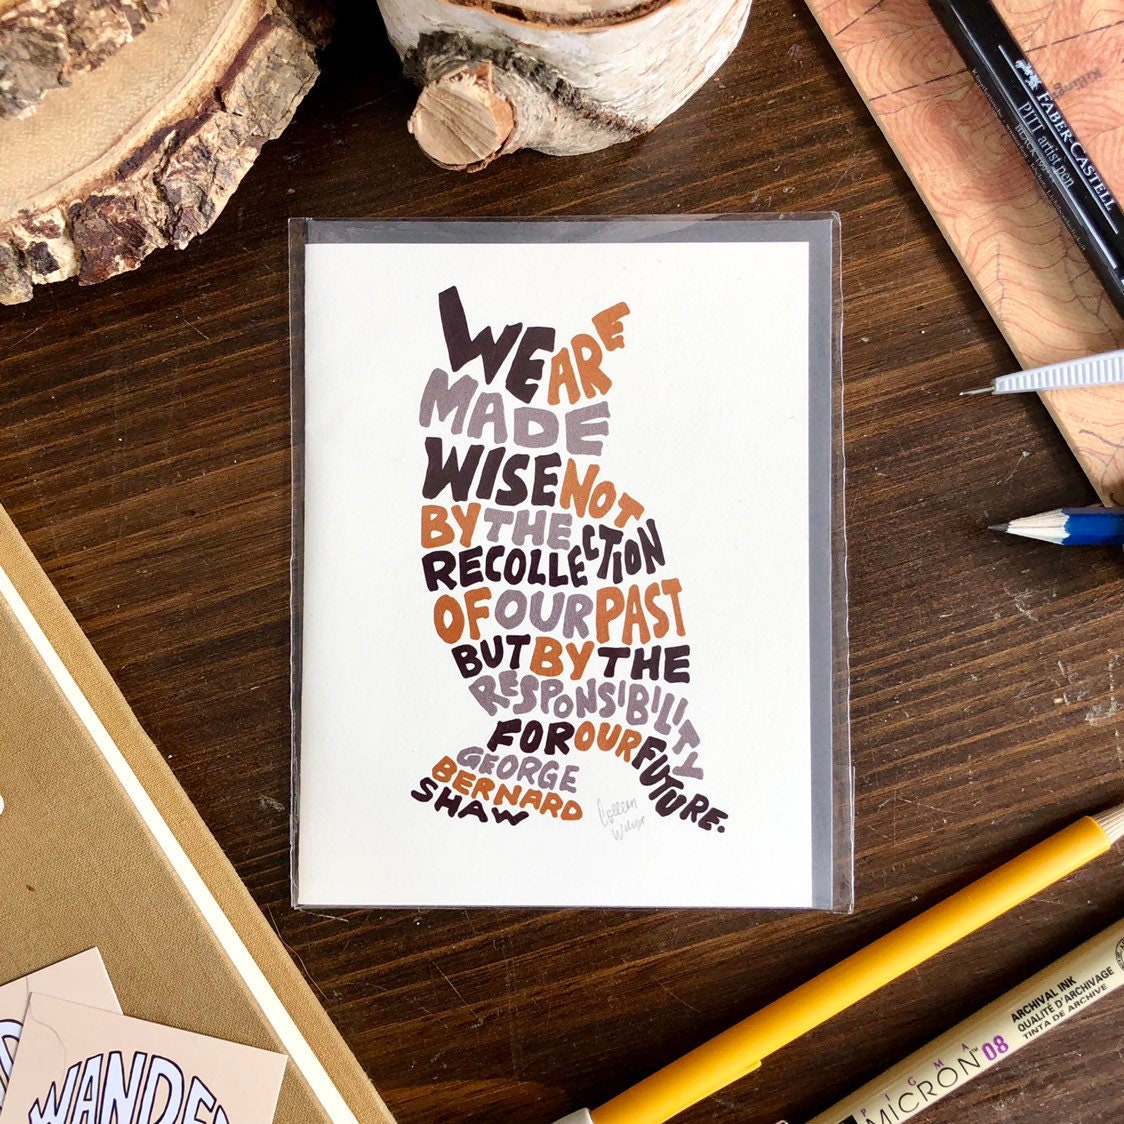 WE ARE
MADE
WISE NOT
BY THE
RECOLLECTION
OF OUR PAST
BUT BY THE
RESPONSIBILITY
FOR OUR FUTURE.
GEORGE
BERNARD
SHAW
Colleen
FABER-CASTELL
PITT artist pen
WANDE
MICRON 08
ARCHIVAL INK
QUALITÉ D'ARCHIVAGE
TINTA DE ARCHIVE